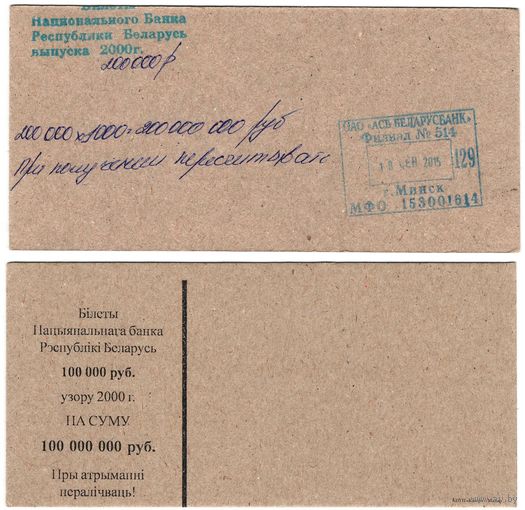 Билеты
Национального Банка
Республики Беларусь
выпуска 2000г.
200000 р
200 000 х 1000 = 200 000 000 руб
При получении пересчитывать
ОАО «АСБ БЕЛАРУСБАНК»
Филиал № 514
18 СЕН 2015
129
г. Минск
МФО 153001614
Білеты
Нацыянальнага банка
Рэспублікі Беларусь
100 000 руб.
узору 2000 г.
НА СУМУ
100 000 000 руб.
Пры атрыманні
пералічваць!